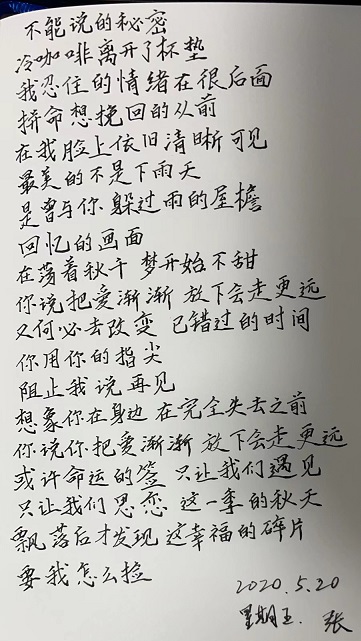 不能说的秘密
冷咖啡离开了杯垫
我忍住的情绪在很后面
拼命想挽回的从前
在我脸上依旧清晰可见
最美的不是下雨天
是曾与你躲过雨的屋檐
回忆的画面
在荡着秋千 梦开始不甜
你说把爱渐渐 放下会走更远
又何必去改变 已错过的时间
你用你的指尖
阻止我说再见
想象你在身边 在完全失去之前
你说你把爱渐渐 放下会走更远
或许命运的签 只让我们遇见
只让我们思恋 这一季的秋天
飘落后才发现 这幸福的碎片
要我怎么捡
2020.5.20
星期五. 张